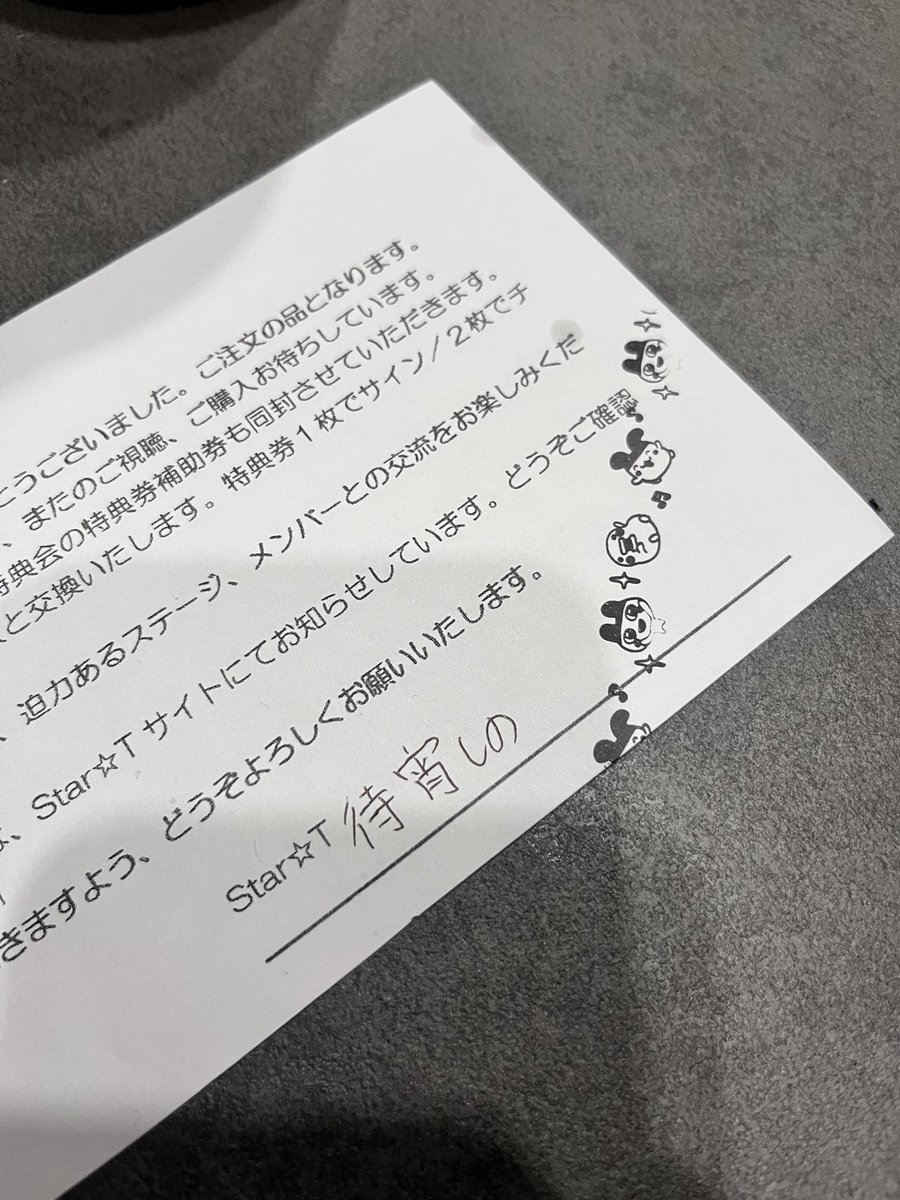 とうございました。ご注文の品となります。
、またのご視聴、ご購入お待ちしています。
特典会の特典券補助券も同封させていただきます。
と交換いたします。特典券1枚でサイン/2枚でチ
、迫力あるステージ、メンバーとの交流をお楽しみくだ
、Star☆Tサイトにてお知らせしています。どうぞご確認
きますよう、どうぞよろしくお願いいたします。
Star☆T 待宵しの